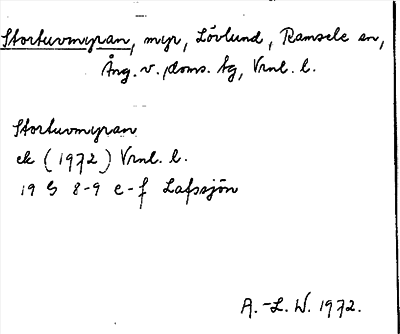 Stortuvmyran, myr, Lövlund, Ramsele sn,
Ång. v. doms. tg, Vrnl. l.
Stortuvmyran
ek (1972) Vrnl. l.
19 G 8-9 e-f Lafssjön
A.-L. W. 1972.